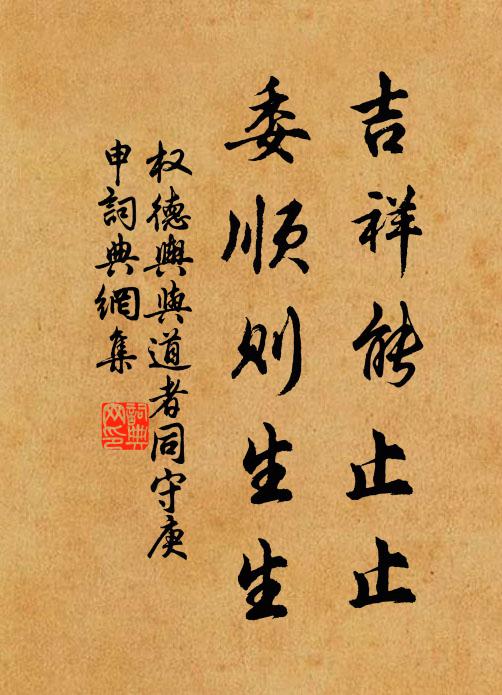 吉祥能止止
委顺则生生
权德舆与道者同守庚
申词典網集
詞典
网印